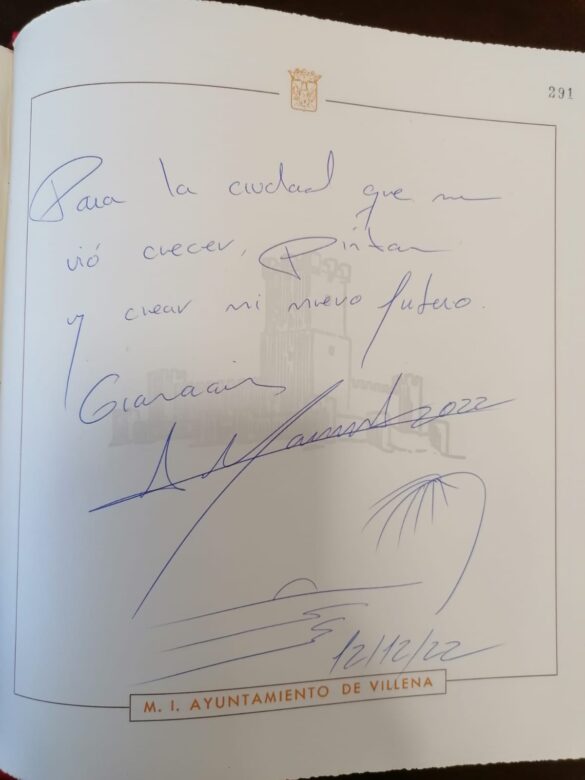 291
Para la ciudad que me
vió crecer, Pintar
y crear mi nuevo futuro.
2022
12/12/22
M. I. AYUNTAMIENTO DE VILLENA